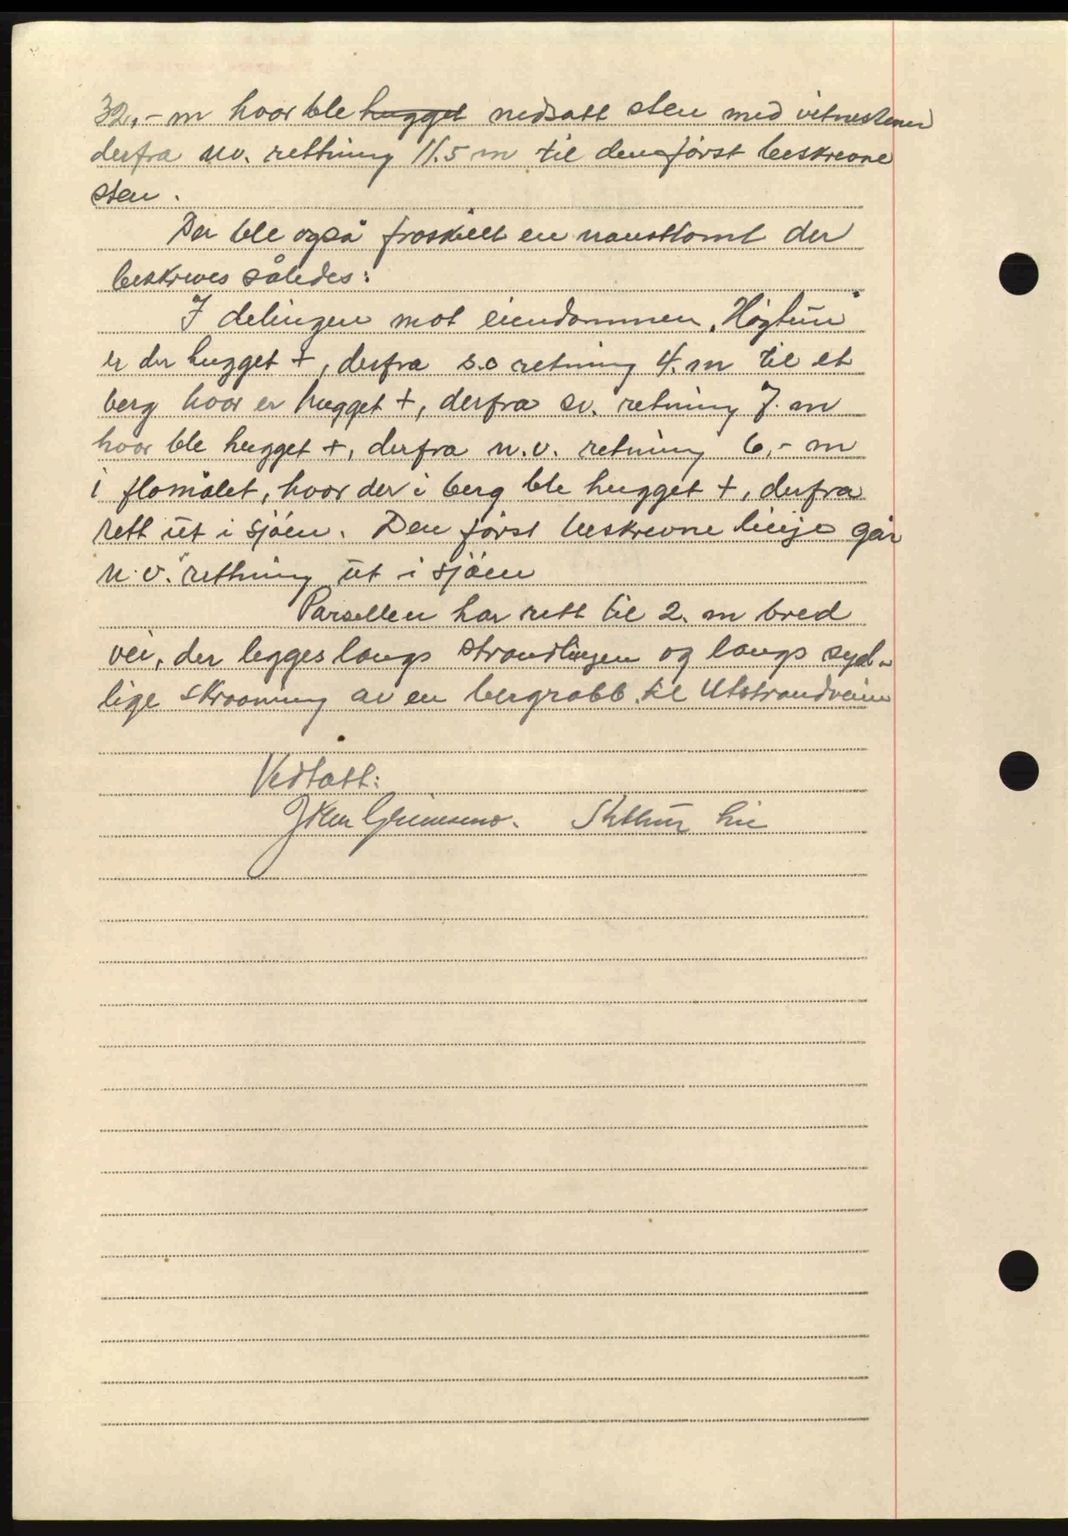 32,- m hvor ble hugget nedsatt sten med vitnestener
derfra nv. rettning 11.5 m til den først beskrevne
sten.
Der ble også fraskilt en nausttomt der
beskrives således:
I delingen mot eiendommen „Høgtun"
er der hugget +, derfra s.o retning 4. m til et
berg hvor er hugget +, derfra sv. retning 7. m
hvor ble hugget +, derfra n.v. retning 6,- m
i flomålet, hvor der i berg ble hugget +, derfra
rett ut i sjøen. Den først beskrevne linje går
n.v. rettning ut i sjøen
Parsellen har rett til 2. m bred
vei, der legges langs strandlinjen og langs syd-
lige skråning av en bergrabb til Utstrandveien
Vedtatt: